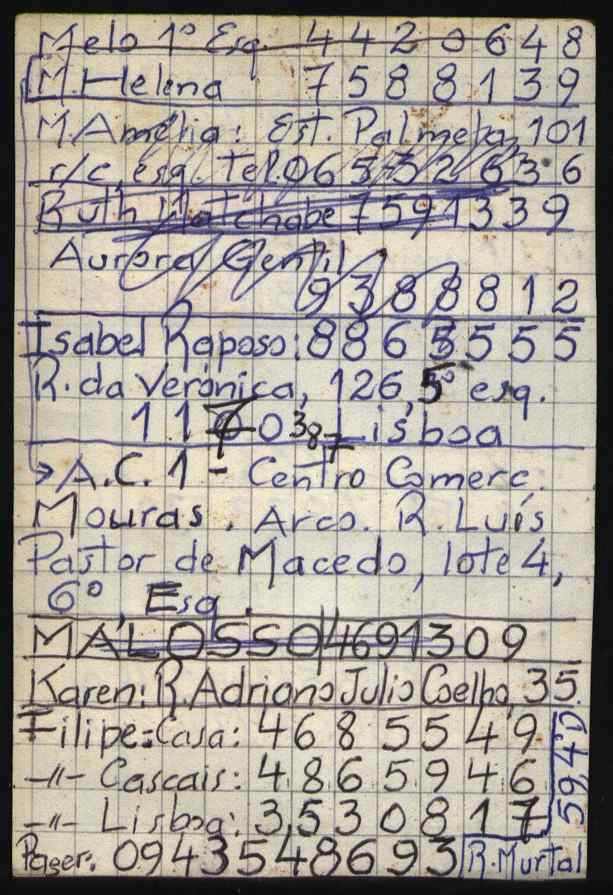 Melo 1º Esq. 4420648
M. Helena 7588139
M. Amélia: Est. Palmela, 101
r/c esq. Tel. 065532636
Ruth 7591339
Aurora Gentil
9388812
Isabel Raposo: 8865555
R. da Verónica, 126, 5º esq.
1170-387 Lisboa
→ A.C. 1 - Centro Comerc.
Mouras. Arco. R. Luís
Pastor de Macedo, lote 4,
6º, Esq.
MALOSSO 4691309
Karen: R. Adriano Julio Coelho, 35.
Filipe: Casa: 4685549
-"- Cascais: 4865946
-"- Lisboa: 3530817
Pager: 0943548693
R. Murtal
594